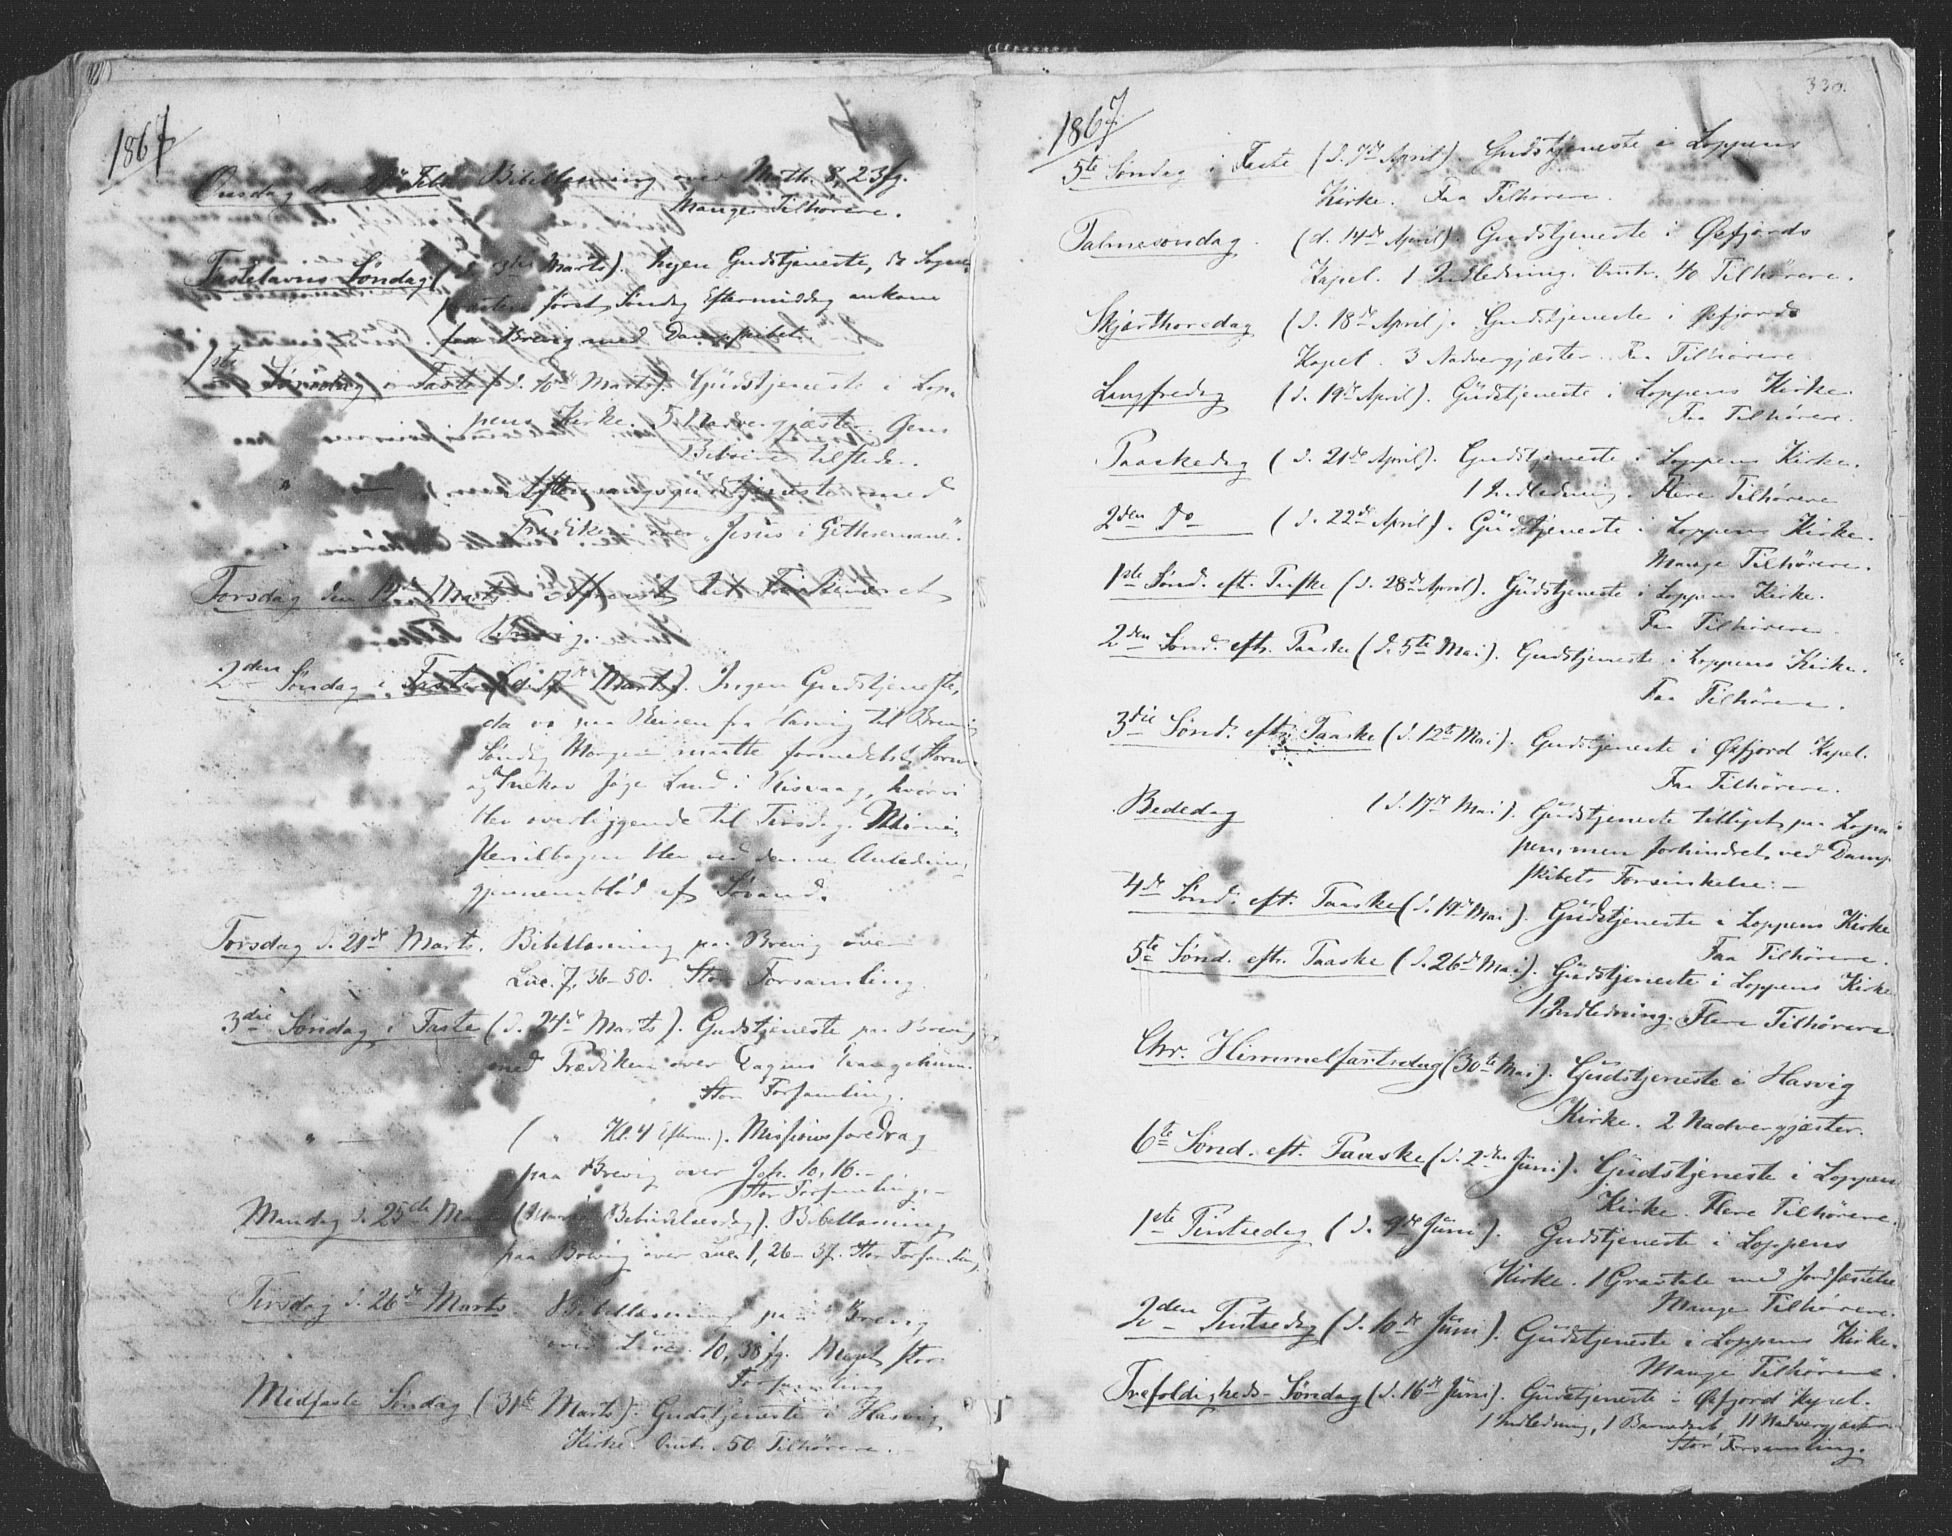 1867
Onsdag den Febr. Bibellæsning over Matth. 8, 23 fg.
Mange Tilhørere.
Fastelavns Søndag ( Marts). Ingen Gudstjeneste, da Sogne-
præsten først Søndag Eftermiddag ankom
fra Brevig med Dampskibet.
1ste Søndag i Faste (d. 10de Marts). Gudstjeneste i Lop-
pens Kirke. 5 Nadvergjæster.
tilstede.
" — Aftensangsgudstjeneste med
Prædiken over "Jesus i Gethsemane".
Torsdag den 14de Marts
2den Søndag i Faste (d. 17de Marts). Ingen Gudstjeneste,
da vi paa Reisen fra Hasvig til Brevig
Søndag Morgen maatte formedelst Storm
og Snekov søge Land i Kisvaag, hvor vi
blev overliggende til Tirsdag. Mini-
sterialbogen blev ved denne Anledning
gjennemblød af Søvand.
Torsdag d. 21de Marts. Bibellæsning paa Brevig over
Luc. 7, 36-50. Stor Forsamling.
3die Søndag i Faste (d. 24de Marts). Gudstjeneste paa Brevig
med Prædiken over Dagens Evangelium.
Stor Forsamling.
" — ( " Kl. 4 Efterm.). Missionsforedrag
paa Brevig over Joh. 10, 16. —
Stor Forsamling. —
Mandag d. 25de Marts (Mariæ Bebudelsesdag). Bibellæsning
paa Brevig over Luc. 1, 26-38. Stor Forsamling.
Tirsdag d. 26de Marts. Bibellæsning paa Brevig
over Luc. 10, 38 fg. Meget stor
Forsamling
Midfaste Søndag (31te Marts). Gudstjeneste i Hasvig
Kirke. Omtr. 50 Tilhørere. —
330.
1867
5te Søndag i Faste (d. 7de April). Gudstjeneste i Loppens
Kirke. Faa Tilhørere.
Palmesøndag. (d. 14de April). Gudstjeneste i Øxfjords
Kapel. 1 Indledning. Omtr. 40 Tilhørere.
Skjærthorsdag (d. 18de April). Gudstjeneste i Øxfjords
Kapel. 3 Nadvergjæster. Faa Tilhørere
Langfredag (d. 19de April). Gudstjeneste i Loppens Kirke.
Faa Tilhørere.
Paaskedag (d. 21de April). Gudstjeneste i Loppens Kirke.
1 Indledning. Flere Tilhørere
2den Do (d. 22de April). Gudstjeneste i Loppens Kirke.
Mange Tilhørere.
1ste Sønd. eft. Paaske (d. 28de April). Gudstjeneste i Loppens Kirke.
Faa Tilhørere.
2den Sønd. eft. Paaske (d. 5te Mai). Gudstjeneste i Loppens Kirke.
Faa Tilhørere.
3die Sønd. eft. Paaske (d. 12te Mai). Gudstjeneste i Øxfjord Kapel.
Faa Tilhørere.
Bededag (d. 17de Mai). Gudstjeneste tillyst paa Lop-
pen, men forhindret ved Damp-
skibets Forsinkelse. —
4de Sønd. eft. Paaske (d. 19de Mai). Gudstjeneste i Loppens Kirke
Faa Tilhørere.
5te Sønd. eft. Paaske (d. 26de Mai). Gudstjeneste i Loppens Kirke
1 Indledning. Flere Tilhørere
Chr. Himmelfartsdag (30te Mai). Gudstjeneste i Hasvig
Kirke. 2 Nadvergjæster.
6te Sønd. eft. Paaske (d. 2den Juni). Gudstjeneste i Loppens
Kirke. Flere Tilhørere.
1ste Pintsedag (d. 9de Juni). Gudstjeneste i Loppens
Kirke. 1 Gravtale med Jordfæstelse
Mange Tilhørere.
2den Pintsedag (d. 10de Juni). Gudstjeneste i Loppens Kirke.
Mange Tilhørere.
Trefoldigheds-Søndag (d. 16de Juni). Gudstjeneste i Øxfjord Kapel.
1 Indledning, 1 Barnedaab, 11 Nadvergjæster.
Stor Forsamling.